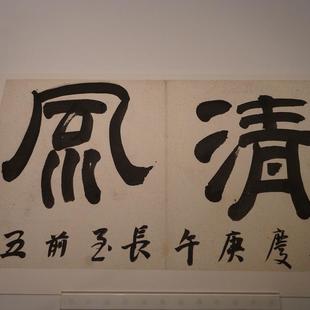 清風
慶庚午長至前五